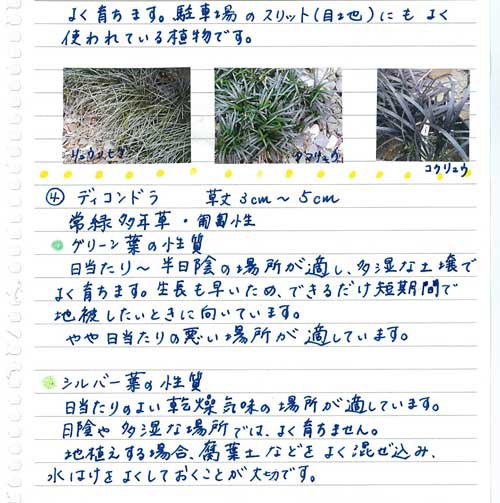 よく育ちます。駐車場のスリット(目地)にもよく
使われている植物です。
リュウノヒゲ
タマリュウ
コクリュウ
④ ディコンドラ 草丈3cm〜5cm
常緑多年草・匍匐性
グリーン葉の性質
日当たり〜半日陰の場所が適し、多湿な土壌で
よく育ちます。生長も早いため、できるだけ短期間で
地被したいときに向いています。
やや日当たりの悪い場所が適しています。
シルバー葉の性質
日当たりのよい乾燥気味の場所が適しています。
日陰や多湿な場所では、よく育ちません。
地植えする場合、腐葉土などをよく混ぜ込み、
水はけをよくしておくことが大切です。